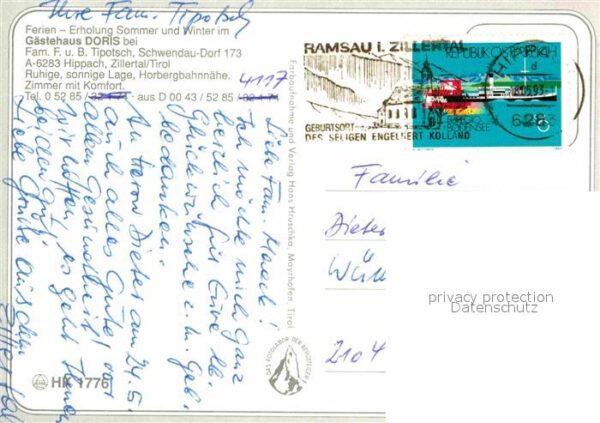 Ihre Fam. Tipotsch
Ferien – Erholung Sommer und Winter im
Gästehaus DORIS bei
Fam. F. u. B. Tipotsch, Schwendau-Dorf 173
A-6283 Hippach, Zillertal/Tirol
Ruhige, sonnige Lage, Horbergbahnnähe.
Zimmer mit Komfort.
4117
Tel. 0 52 85 / - aus D 00 43 / 52 85 /
HK 1776
Liebe Fam.
Ich möchte mich ganz
herzlich für Eure lb.
Glückwünsche z. m. Geb.
bedanken.
An Herrn Dieter am 24.5.
auch alles Gute! vor
allem Gesundheit!
Wir hoffen, es geht Ihnen
beiden gut!
Liebe Grüße aus dem
Zillertal
Farbaufnahme und Verlag Hans Hruschka, Mayrhofen, Tirol
DAS FOTOLABOR DER BERGSTEIGER
RAMSAU i. ZILLERTAL
GEBURTSORT
DES SELIGEN ENGELBERT KOLLAND
REPUBLIK ÖSTERREICH
BODENSEE
6283
Familie
Dieter
2104
privacy protection
Datenschutz